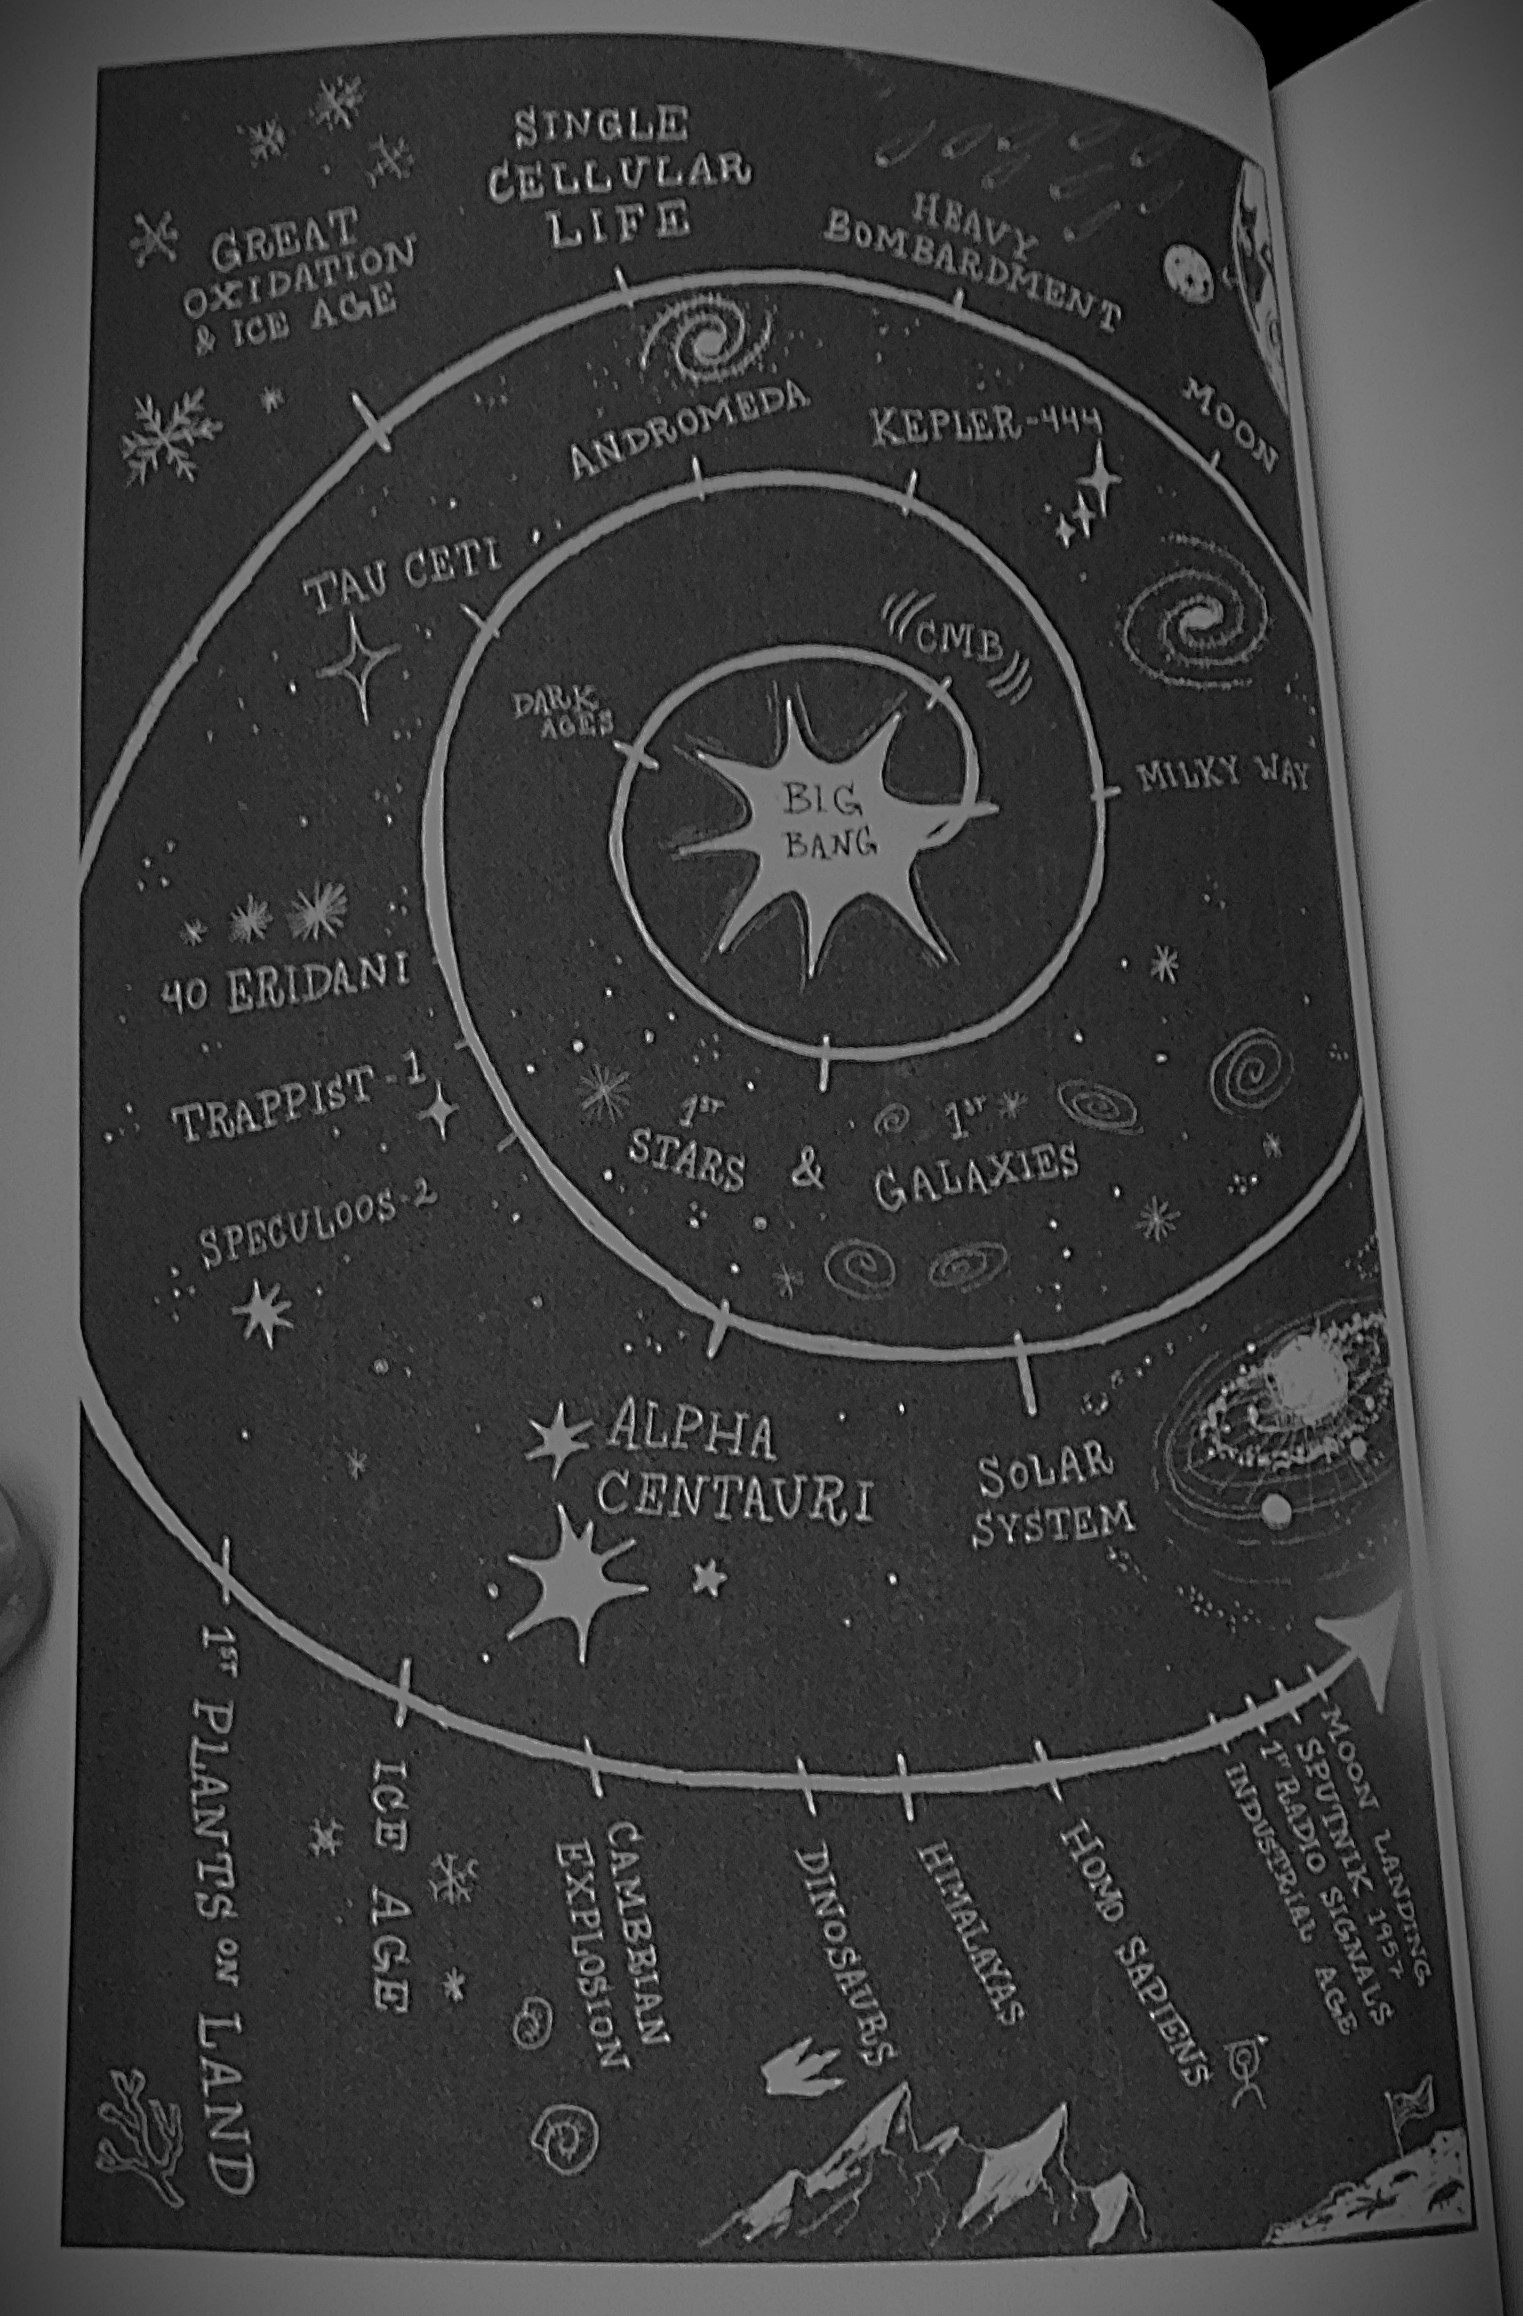 BIG
BANG
CMB
DARK
AGES
1ST
STARS
&
1ST
GALAXIES
MILKY WAY
KEPLER-444
ANDROMEDA
TAU CETI
40 ERIDANI
TRAPPIST-1
SPECULOOS-2
ALPHA
CENTAURI
SOLAR
SYSTEM
MOON
HEAVY
BOMBARDMENT
SINGLE
CELLULAR
LIFE
GREAT
OXIDATION
& ICE AGE
1ST PLANTS ON LAND
ICE AGE
CAMBRIAN
EXPLOSION
DINOSAURS
HIMALAYAS
HOMO SAPIENS
INDUSTRIAL AGE
1ST RADIO SIGNALS
SPUTNIK 1957
MOON LANDING